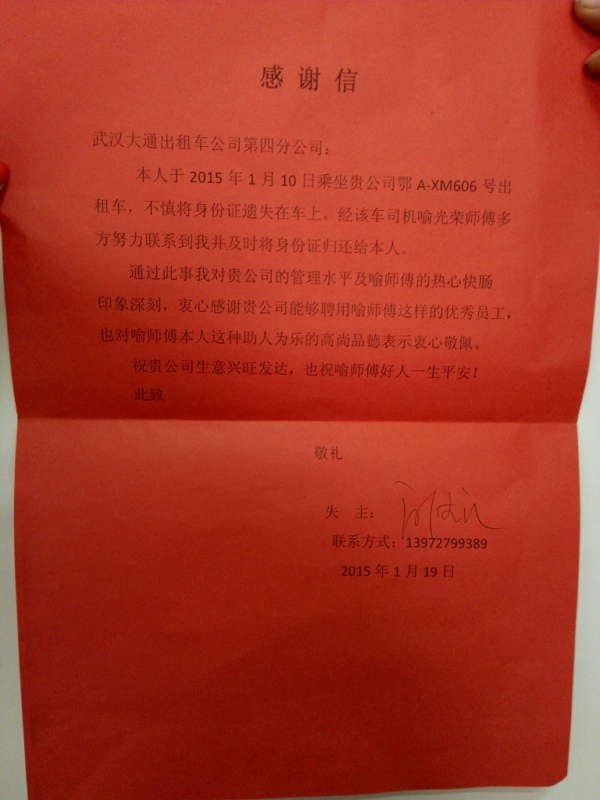 感谢信
武汉大通出租车公司第四分公司：
本人于 2015 年 1 月 10 日乘坐贵公司鄂 A-XM606 号出
租车，不慎将身份证遗失在车上。经该车司机喻光荣师傅多
方努力联系到我并及时将身份证归还给本人。
通过此事我对贵公司的管理水平及喻师傅的热心快肠
印象深刻，衷心感谢贵公司能够聘用喻师傅这样的优秀员工，
也对喻师傅本人这种助人为乐的高尚品德表示衷心敬佩。
祝贵公司生意兴旺发达，也祝喻师傅好人一生平安！
此致
敬礼
失 主：
联系方式：13972799389
2015 年 1 月 19 日